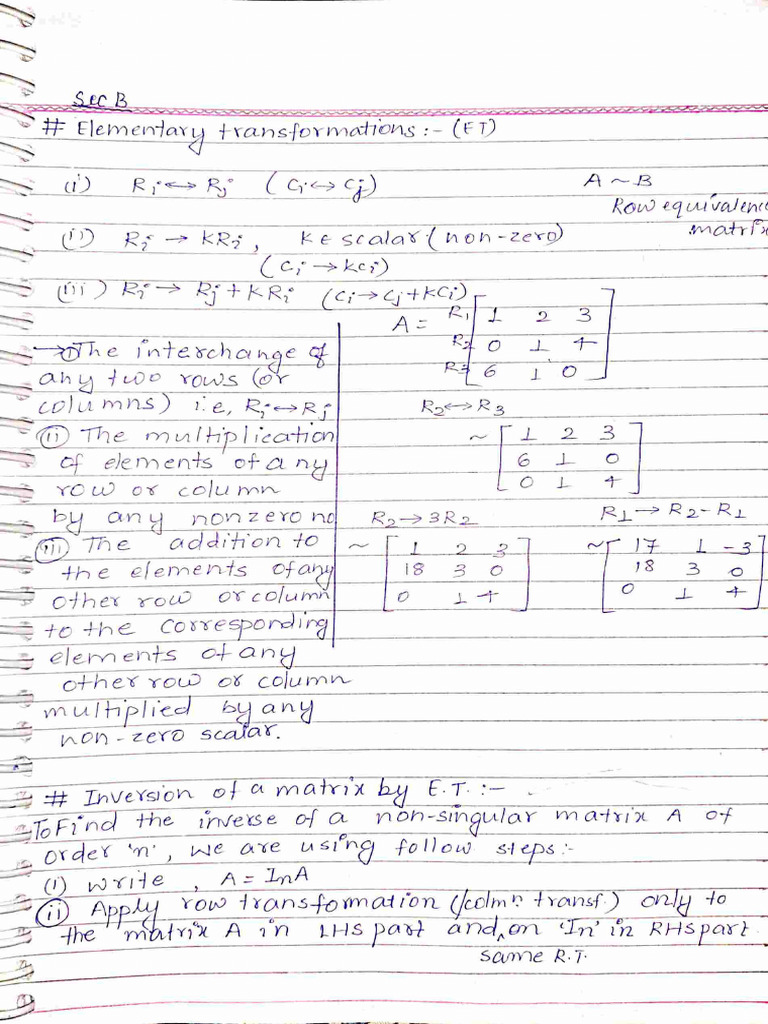 Sec B
# Elementary transformations:- (ET)
(i) Ri↔Rj (Ci↔Cj) A~B
Row equivalence
matrix
(ii) Ri → KRi, K∈ scalar (non-zero)
(Ci → KCi)
(iii) Ri → Rj + KRi (Ci → Cj + KCi)
→(i) The interchange of
any two rows (or
columns) i.e, Ri↔Rj
(ii) The multiplication
of elements of any
row or column
by any nonzero no
(iii) The addition to
the elements of any
other row or column
to the corresponding
elements of any
other row or column
multiplied by any
non-zero scalar.
A =
R1 [ 1 2 3 ]
R2 [ 0 1 4 ]
R3 [ 6 1 0 ]
R2↔R3
~ [ 1 2 3
6 1 0
0 1 4 ]
R2→3R2
~ [ 1 2 3
18 3 0
0 1 4 ]
R1→R2-R1
~ [ 17 1 -3
18 3 0
0 1 4 ]
# Inversion of a matrix by E.T. :-
To Find the inverse of a non-singular matrix A of
order 'n', we are using follow steps:-
(i) write, A = InA
(ii) Apply row transformation (/colmn transf.) only to
the matrix A in LHS part and, on 'In' in RHS part
same R.T.